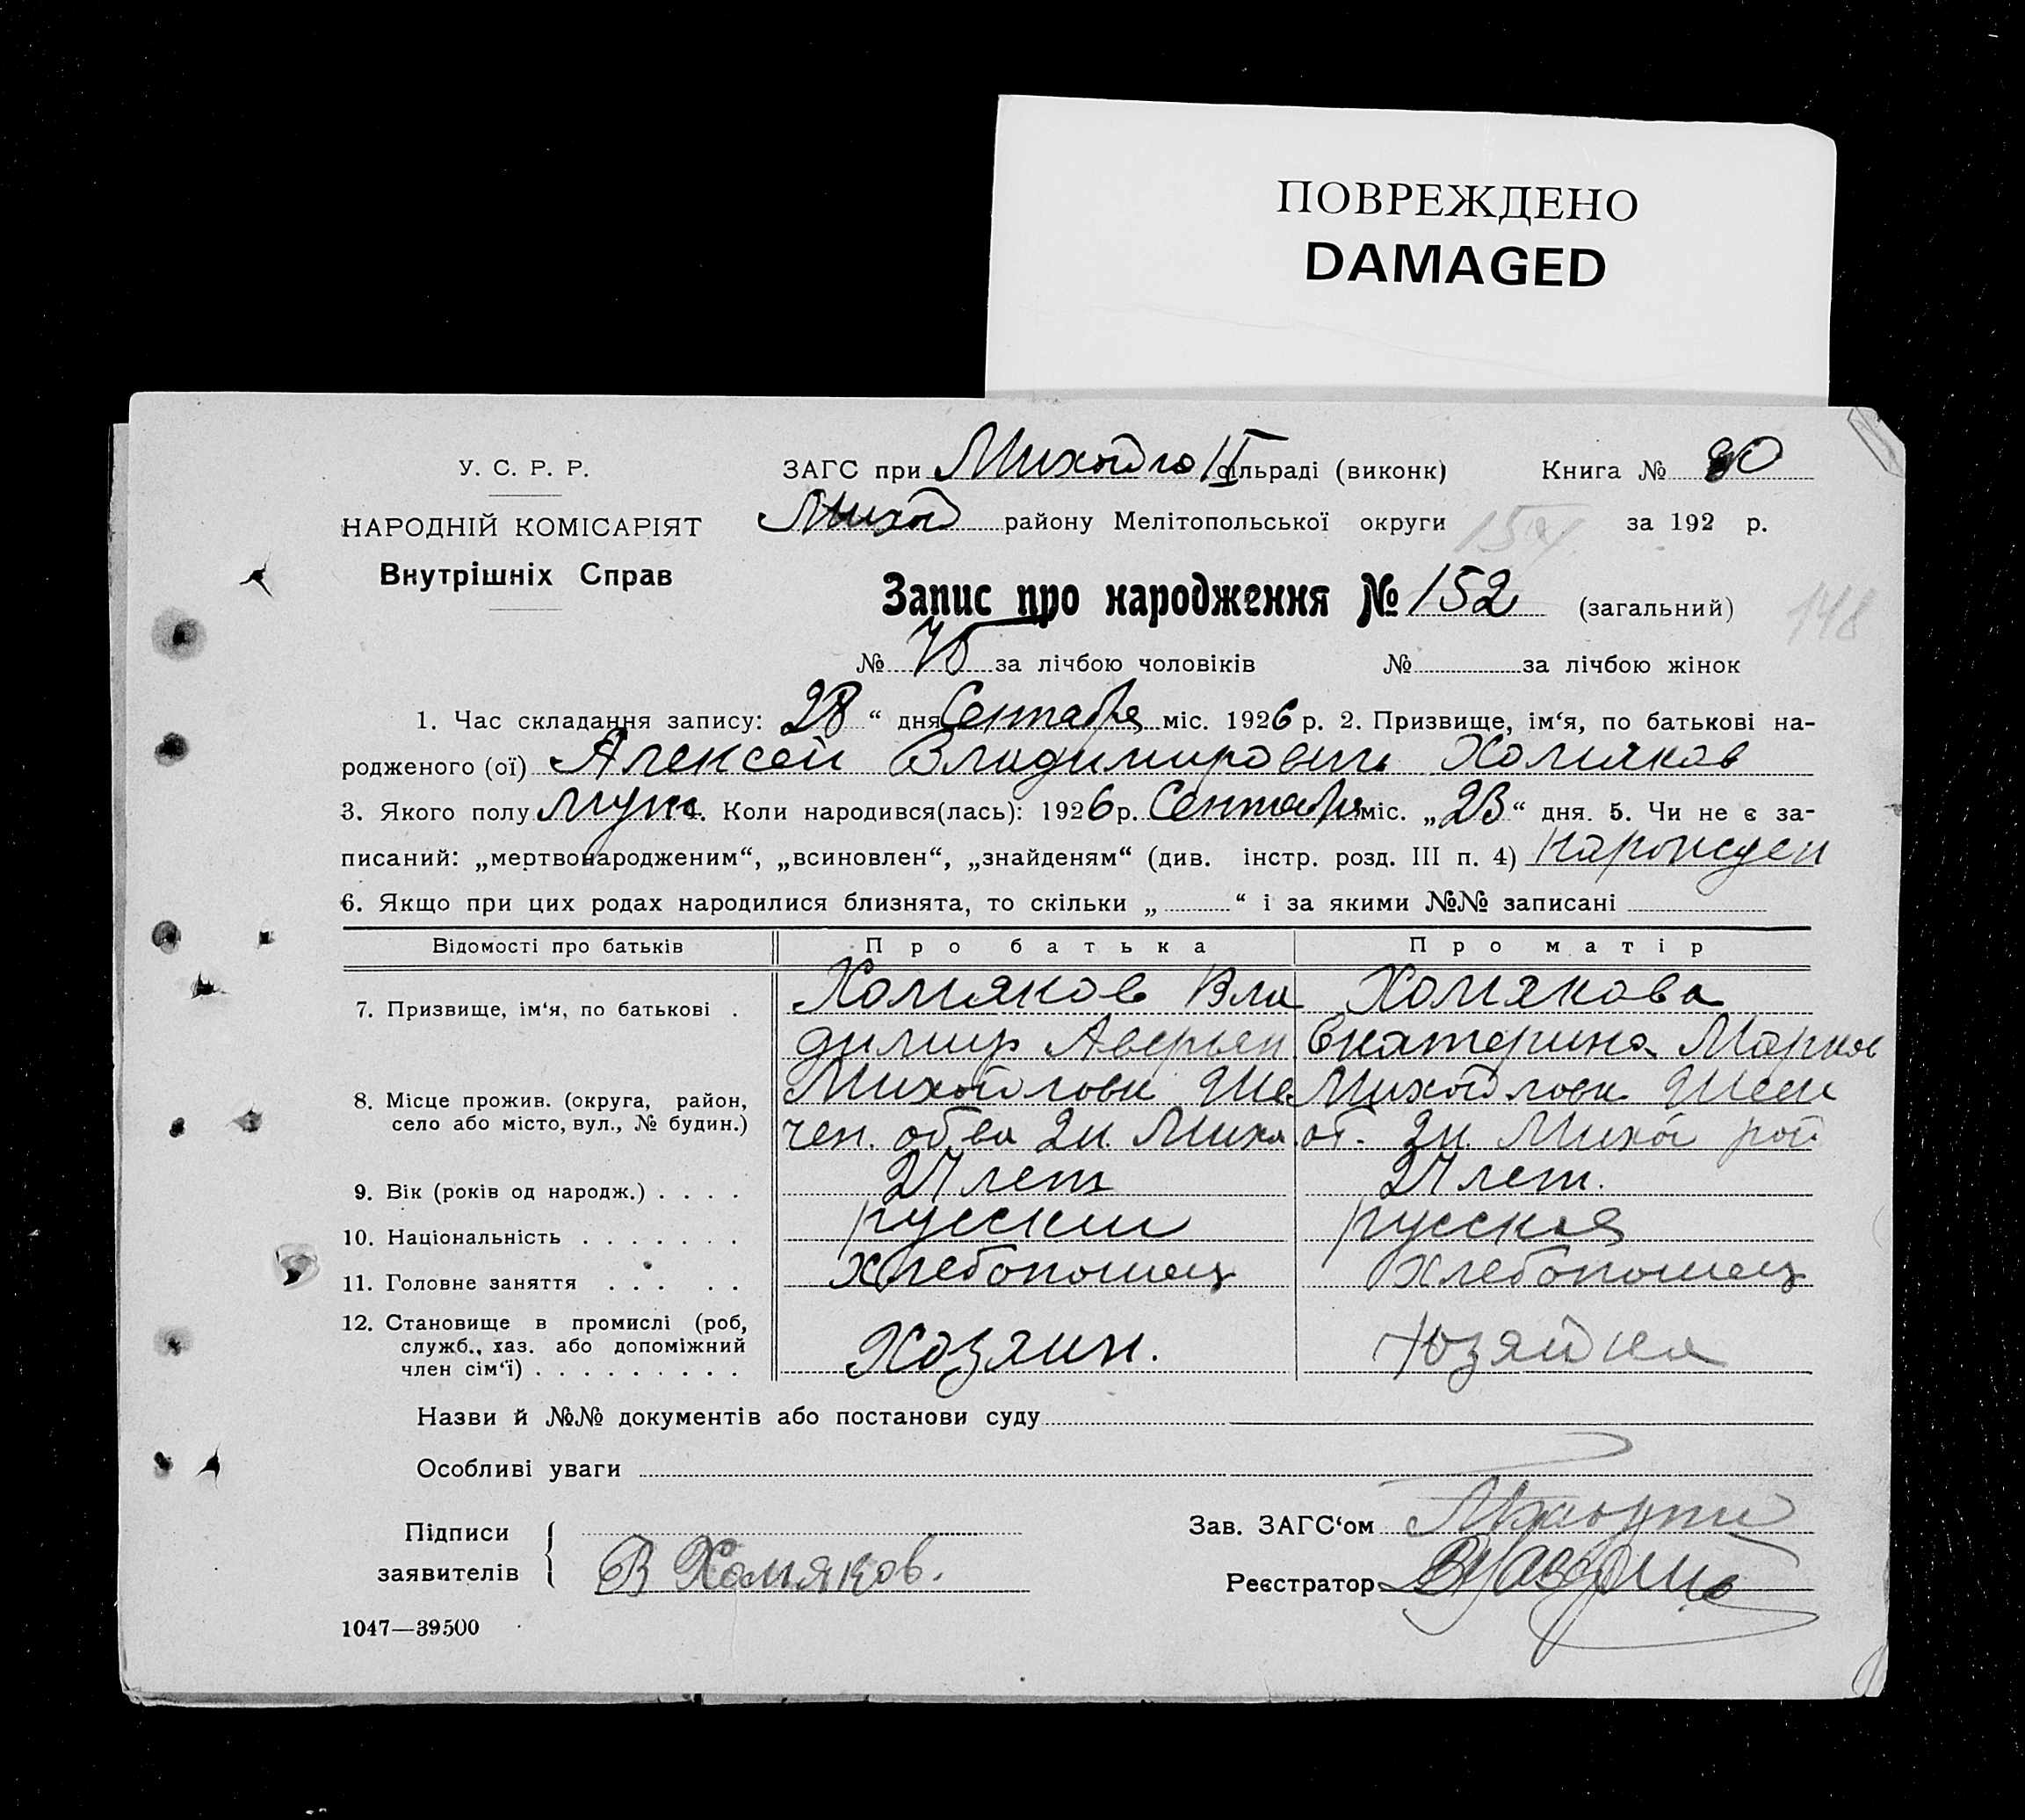 ПОВРЕЖДЕНО
DAMAGED
У. С. Р. Р.
НАРОДНІЙ КОМІСАРІЯТ
Внутрішніх Справ
ЗАГС при Михайло II сільраді (виконк) Книга № 20
Михай району Мелітопольської округи за 192 р.
Запис про народження № 152 (загальний)
148
№ 75 за лічбою чоловіків № за лічбою жінок
1. Час складання запису: 28 “ дня Сентября міс. 1926 р. 2. Призвище, ім‘я, по батькові на-
родженого (ої) Алексей Владимирович Хомяков
3. Якого полу муж 4. Коли народився(лась): 1926 р. Сентября міс. „23“ дня. 5. Чи не є за-
писаний: „мертвонародженим“, „всиновлен“, „знайденям“ (див. інстр. розд. III п. 4) Нарожден
6. Якщо при цих родах народилися близнята, то скільки „ “ і за якими №№ записані
Відомості про батьків Про батька Про матір
7. Призвище, ім‘я, по батькові . Хомяков Вла Хомякова
димир Аверьян Екатерина Марков
8. Місце прожив. (округа, район, Михайловк Михайловк
село або місто, вул., № будин.) 2й Миха 2й Михай рай
9. Вік (років од народж.) . . . . 27 лет 27 лет.
10. Національність . . . . . . . русский русская
11. Головне заняття . . . . . Хлебопошец Хлебопошец
12. Становище в промислі (роб,
служб., хаз. або допоміжний
член сім‘ї) . . . . . . . . . Хозяин. хозяйка
Назви й №№ документів або постанови суду
Особливі уваги
Підписи
заявителів В Хомяков.
Зав. ЗАГС‘ом
Реєстратор
1047—39500